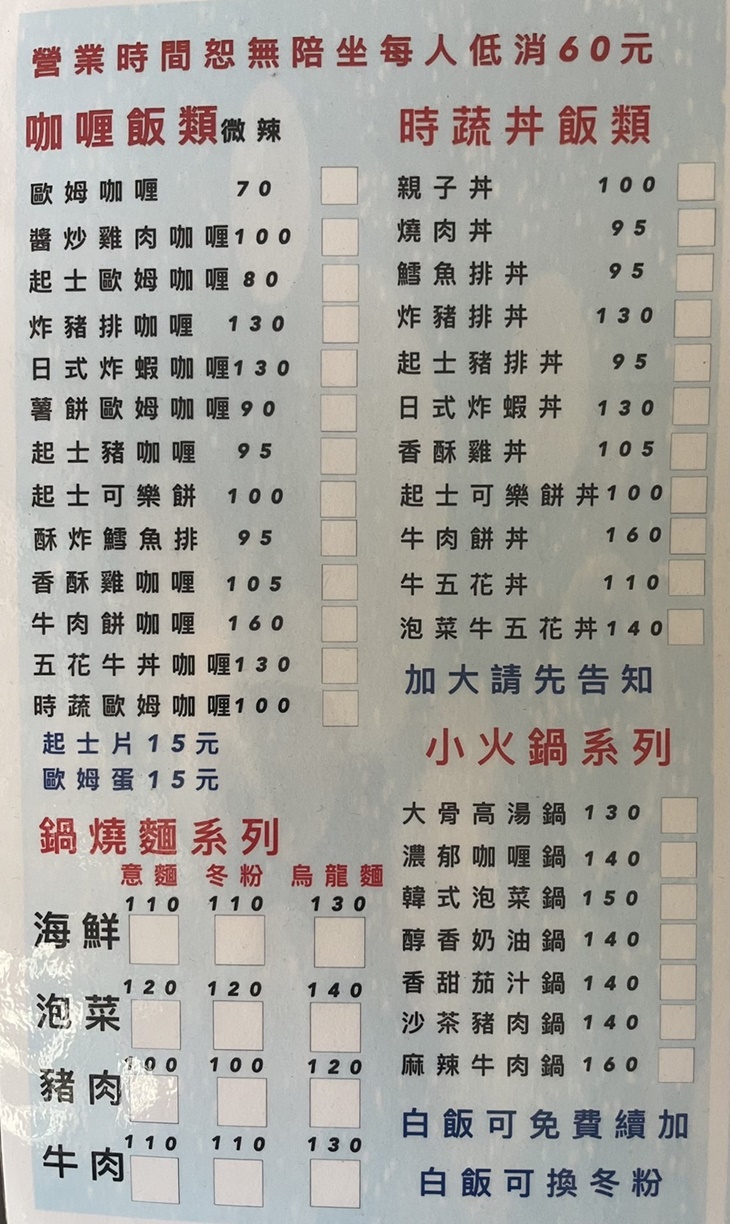 營業時間恕無陪坐每人低消60元
咖喱飯類微辣
歐姆咖喱 70
醬炒雞肉咖喱100
起士歐姆咖喱 80
炸豬排咖喱 130
日式炸蝦咖喱130
薯餅歐姆咖喱90
起士豬咖喱 95
起士可樂餅 100
酥炸鱈魚排 95
香酥雞咖喱 105
牛肉餅咖喱 160
五花牛丼咖喱130
時蔬歐姆咖喱100
起士片15元
歐姆蛋15元
鍋燒麵系列
意麵 冬粉 烏龍麵
110 110 130
海鮮
120 120 140
泡菜
100 100 120
豬肉
110 110 130
牛肉
時蔬丼飯類
親子丼 100
燒肉丼 95
鱈魚排丼 95
炸豬排丼 130
起士豬排丼 95
日式炸蝦丼 130
香酥雞丼 105
起士可樂餅丼100
牛肉餅丼 160
牛五花丼 110
泡菜牛五花丼140
加大請先告知
小火鍋系列
大骨高湯鍋 130
濃郁咖喱鍋 140
韓式泡菜鍋 150
醇香奶油鍋 140
香甜茄汁鍋 140
沙茶豬肉鍋 140
麻辣牛肉鍋 160
白飯可免費續加
白飯可換冬粉